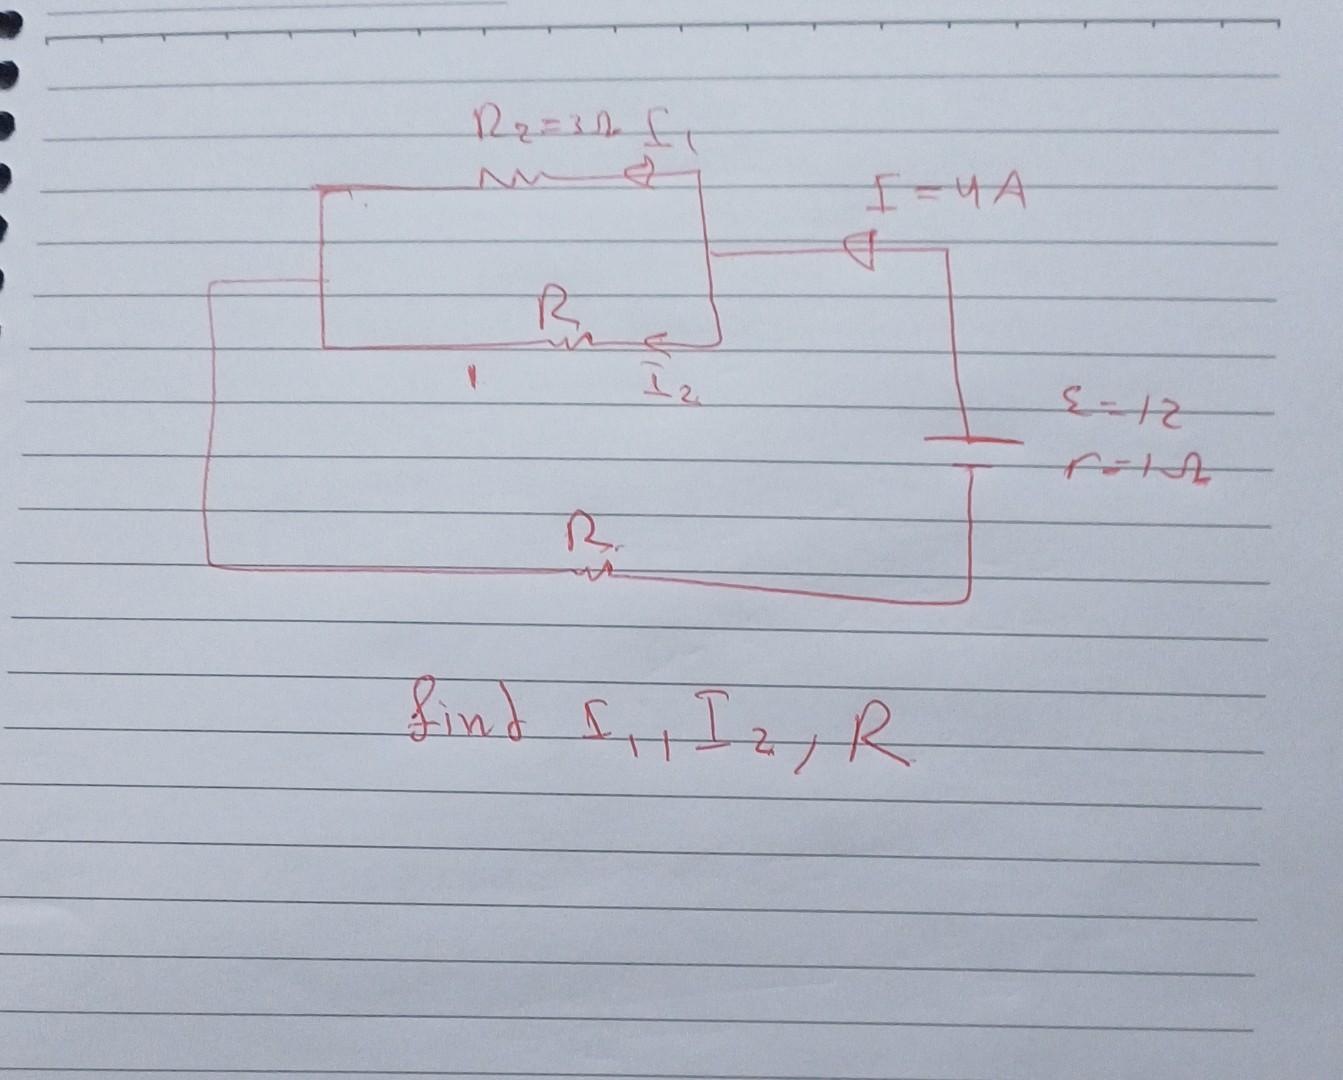 R₂=3Ω I₁
I=4A
R
I₂
ε=12
r=1Ω
R
find I₁, I₂, R